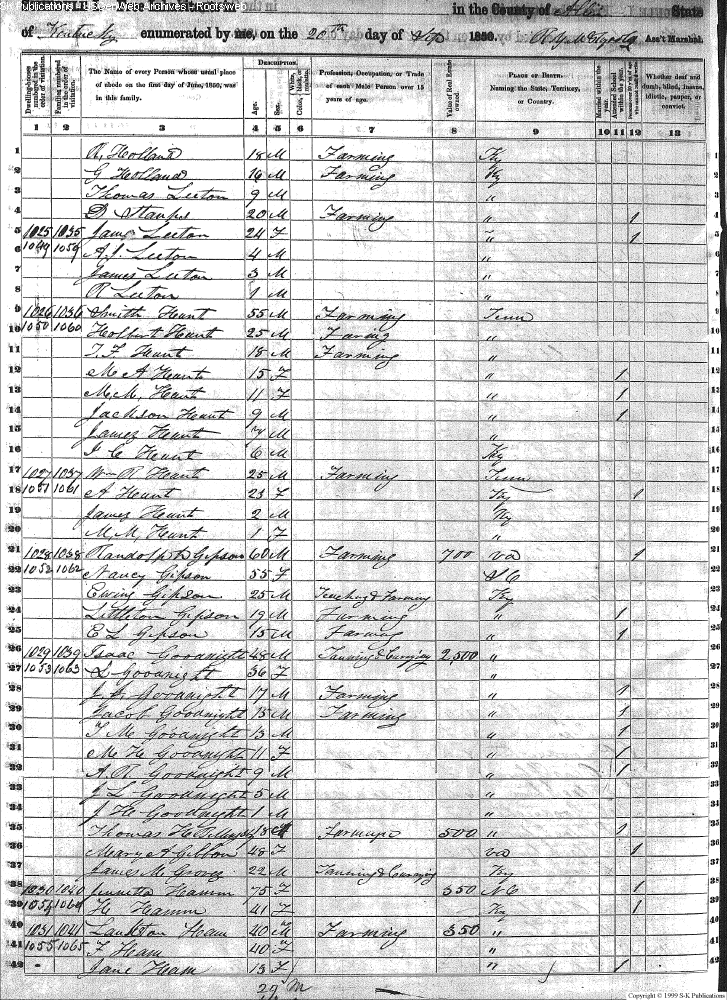 S-K Publications
USGenWeb Archives - Rootsweb
in the County of Allen State
of Kentucky enumerated by me, on the 20th day of Sep 1850. Ass't Marshal.
Dwelling-houses numbered in the order of visitation.
Families numbered in the order of visitation.
The Name of every Person whose usual place of abode on the first day of June, 1850, was in this family.
Description.
Age.
Sex.
White, black, or mulatto.
Color,
Profession, Occupation, or Trade of each Male Person over 15 years of age.
Value of Real Estate owned.
Place of Birth.
Naming the State, Territory, or Country.
Married within the year.
Attended School within the year.
Whether deaf and dumb, blind, insane, idiotic, pauper, or convict.
1 2 3 4 5 6 7 8 9 10 11 12 13
1 R. Holland 18 M Farming Ky
2 G Holland 16 M Farming Ky
3 Thomas Leeton 9 M "
4 D 20 M Farming " 1
5 1025 1035 Jane Leeton 24 F " 1
6 1049 1059 A.J. Leeton 4 M "
7 James Leeton 3 M "
8 R Leeton 1 M "
9 1026 1036 Smith Hunt 55 M Farming Tenn
10 1050 1060 Holbert Hunt 25 M Faring "
11 T. F. Hunt 18 M Farming "
12 M A Hunt 15 F " 1
13 M. M. Hunt 11 F " 1
14 Jackson Hunt 9 M " 1
15 James Hunt 7 M "
16 J. C Hunt 6 M Ky
17 1027 1037 Wm R Hunt 25 M Farming Tenn
18 1051 1061 A Hunt 23 F Ky 1
19 James Hunt 2 M Ky
20 M. M. Hunt 1 F "
21 1028 1038 Randolph Gipson 60 M Farming 700 va 1
22 1052 1062 Nancy Gipson 55 F S C
23 Ewing Gipson 25 M Teaching & Farming Ky
24 Littleton Gipson 19 M Farming " 1
25 E L Gipson 15 M Farming " 1
26 1029 1039 Isaac Goodnight 48 M Tanning & Currying 2,500 "
27 1053 1063 L Goodnight 36 F "
28 Goodnight 17 M Farming " 1
29 Jacob Goodnight 15 M Farming " 1
30 T M Goodnight 13 M " 1
31 M H Goodnight 11 F " 1
32 A. R. Goodnight 9 M " 1
33 J L Goodnight 5 M "
34 J H Goodnight 1 M "
35 Thomas H. 18 M 500 " 1
36 Mary A Gibbon 48 F va 1
37 James M. Grove 22 M Tanning & Currying Ky
38 1030 1040 Jennetta Hamm 75 F 350 N C 1
39 1054 1064 H Hamm 41 F Ky 1
40 1031 1041 Ham 40 M Farming 350 "
41 1055 1065 F Ham 40 F "
42 Jane Ham 13 F " 1
29 M
Copyright © 1999 S-K Publications